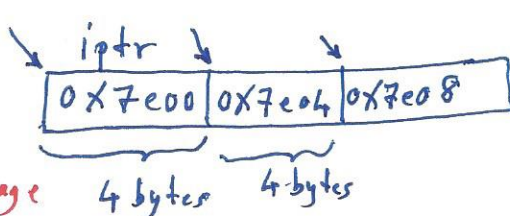 iptr
0x7e00 0x7e04 0x7e08
4 bytes 4 bytes